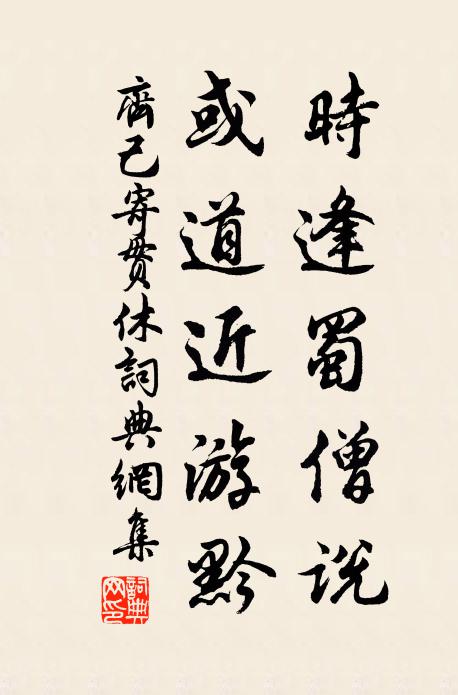 時逢蜀僧説
或道近游黔
齊己寄貫休詞典網集
詞典
网印